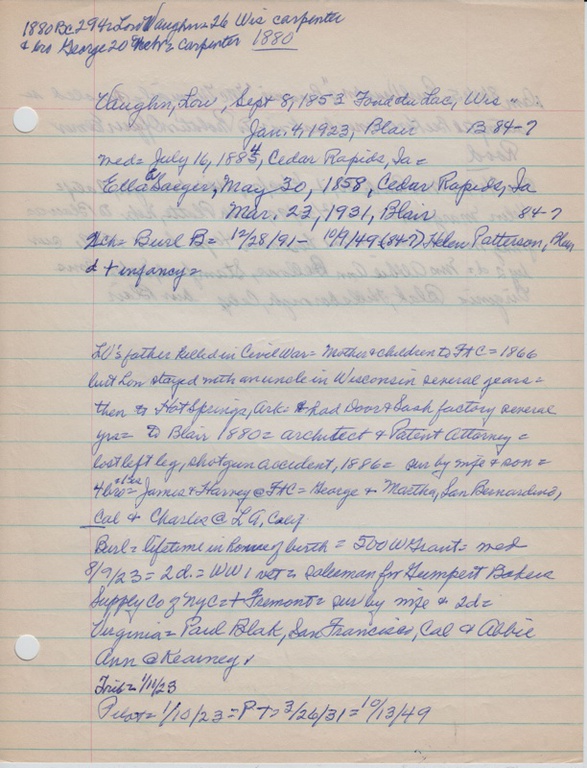 1880 Bc 294 = Lou Vaughn = 26 Wis carpenter
& bro George 20 Nebr = carpenter 1880
Vaughn, Lou, Sept 8, 1853 Fond du Lac, Wis -
Jan. 4, 1923, Blair B 84-7
med = July 16, 1884, Cedar Rapids, Ia =
Ella Saeger, May 30, 1858, Cedar Rapids, Ia
Mar. 23, 1931, Blair 84-7
ch = Burl B = 12/28/91 - 10/9/49 (84-7) Helen Patterson, Blair
d + infancy =
LV's father killed in Civil War = Mother & children to FtC = 1866
but Lou stayed with an uncle in Wisconsin several years =
then to Hot Springs, Ark = & had Door & Sash factory several
yrs = to Blair 1880 = architect & Patent Attorney =
lost left leg, shotgun accident, 1886 = sur by wife & son =
4 bro = James & Harvey @ FtC = George & Martha, San Bernardino,
Cal & Charles @ LA, Calif
Burl = lifetime in house of birth = 500 W Grant = med
8/9/23 = 2 d. = WW 1 vet = salesman for Gumpert Bakers
Supply Co of NYC = + Fremont = sur by wife & 2d =
Virginia = Paul Blak, San Francisco, Cal & Abbie
Ann @ Kearney
Trib = 1/11/23
Pilot = 1/10/23 = P-T = 3/26/31 = 10/13/49